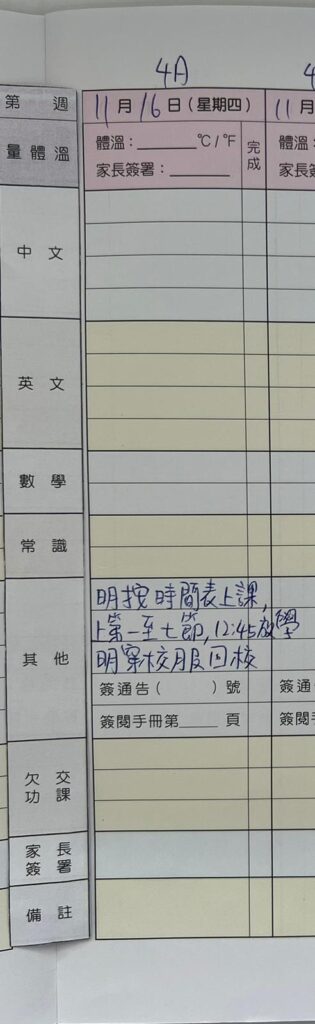 4A
第 週
11月16日(星期四)
11月
量體溫
體溫:______℃/℉
家長簽署:______
完成
體溫:
家長簽
中文
英文
數學
常識
其他
明按時間表上課,
上第一至七節,12:45放學
明穿校服回校
簽通告( )號
簽通
簽閱手冊第____頁
簽閱手
欠交
功課
家長
簽署
備註